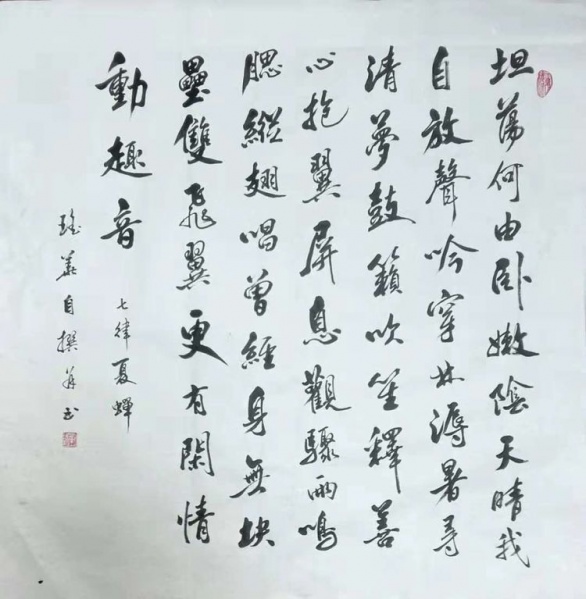 坦蕩何由卧嫩陰天晴我
自放聲吟穿林溽暑尋
清夢鼓籟吹笙釋善
心抱翼屏息觀驟雨鳴
腮縱翅唱曾經身無块
壘雙飛翼更有閑情
動趣音
七律夏蟬
自撰并书